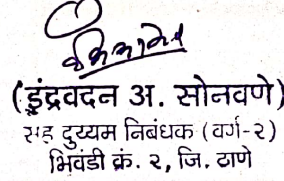 (इंद्रवदन अ. सोनवणे)
सह दुय्यम निबंधक (वर्ग-२)
भिवंडी क्रं. २, जि. ठाणे